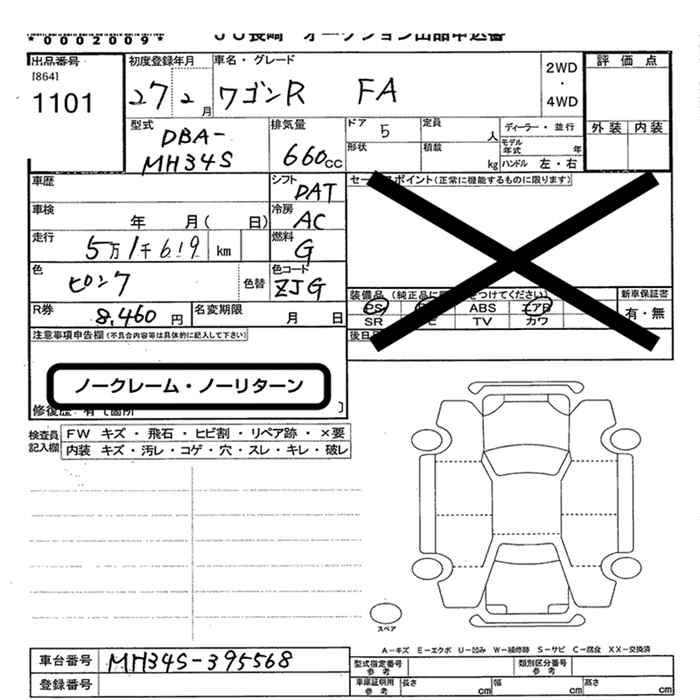 *0002009*
JU長崎 オークション出品申込書
出品番号
[864]
1101
初度登録年月
27 2月
車名・グレード
ワゴンR FA
2WD
・
4WD
評価点
外装 内装
型式
DBA-
MH34S
排気量
660cc
ドア 5
定員 人
ディーラー・並行
形状
積載 kg
モデル年式 年
ハンドル 左・右
車歴
シフト
DAT
セー スポイント(正常に機能するものに限ります)
車検 年 月( 日)
冷房
AC
走行
5万1千619 km
燃料
G
色
ピンク
色替
色コード
ZJG
装備品 (純正品に をつけてください)
新車保証書
有・無
PS ABS エアB
SR TV カワ
R券
8,460円
名変期限 月 日
後日
注意事項申告欄(不具合内容等は具体的に記入して下さい)
ノークレーム・ノーリターン
修復歴 有て箇所 ]
検査員記入欄
FW キズ・飛石・ヒビ割・リペア跡・×要
内装 キズ・汚レ・コゲ・穴・スレ・キレ・破レ
スペア
A-キズ E-エクボ U-凹み W-補修跡 S-サビ C-腐食 XX-交換済
車台番号 MH34S-395568
登録番号
型式指定番号
参考
類別区分番号
参考
車庫証明用
参考
長さ cm 幅 cm 高さ cm